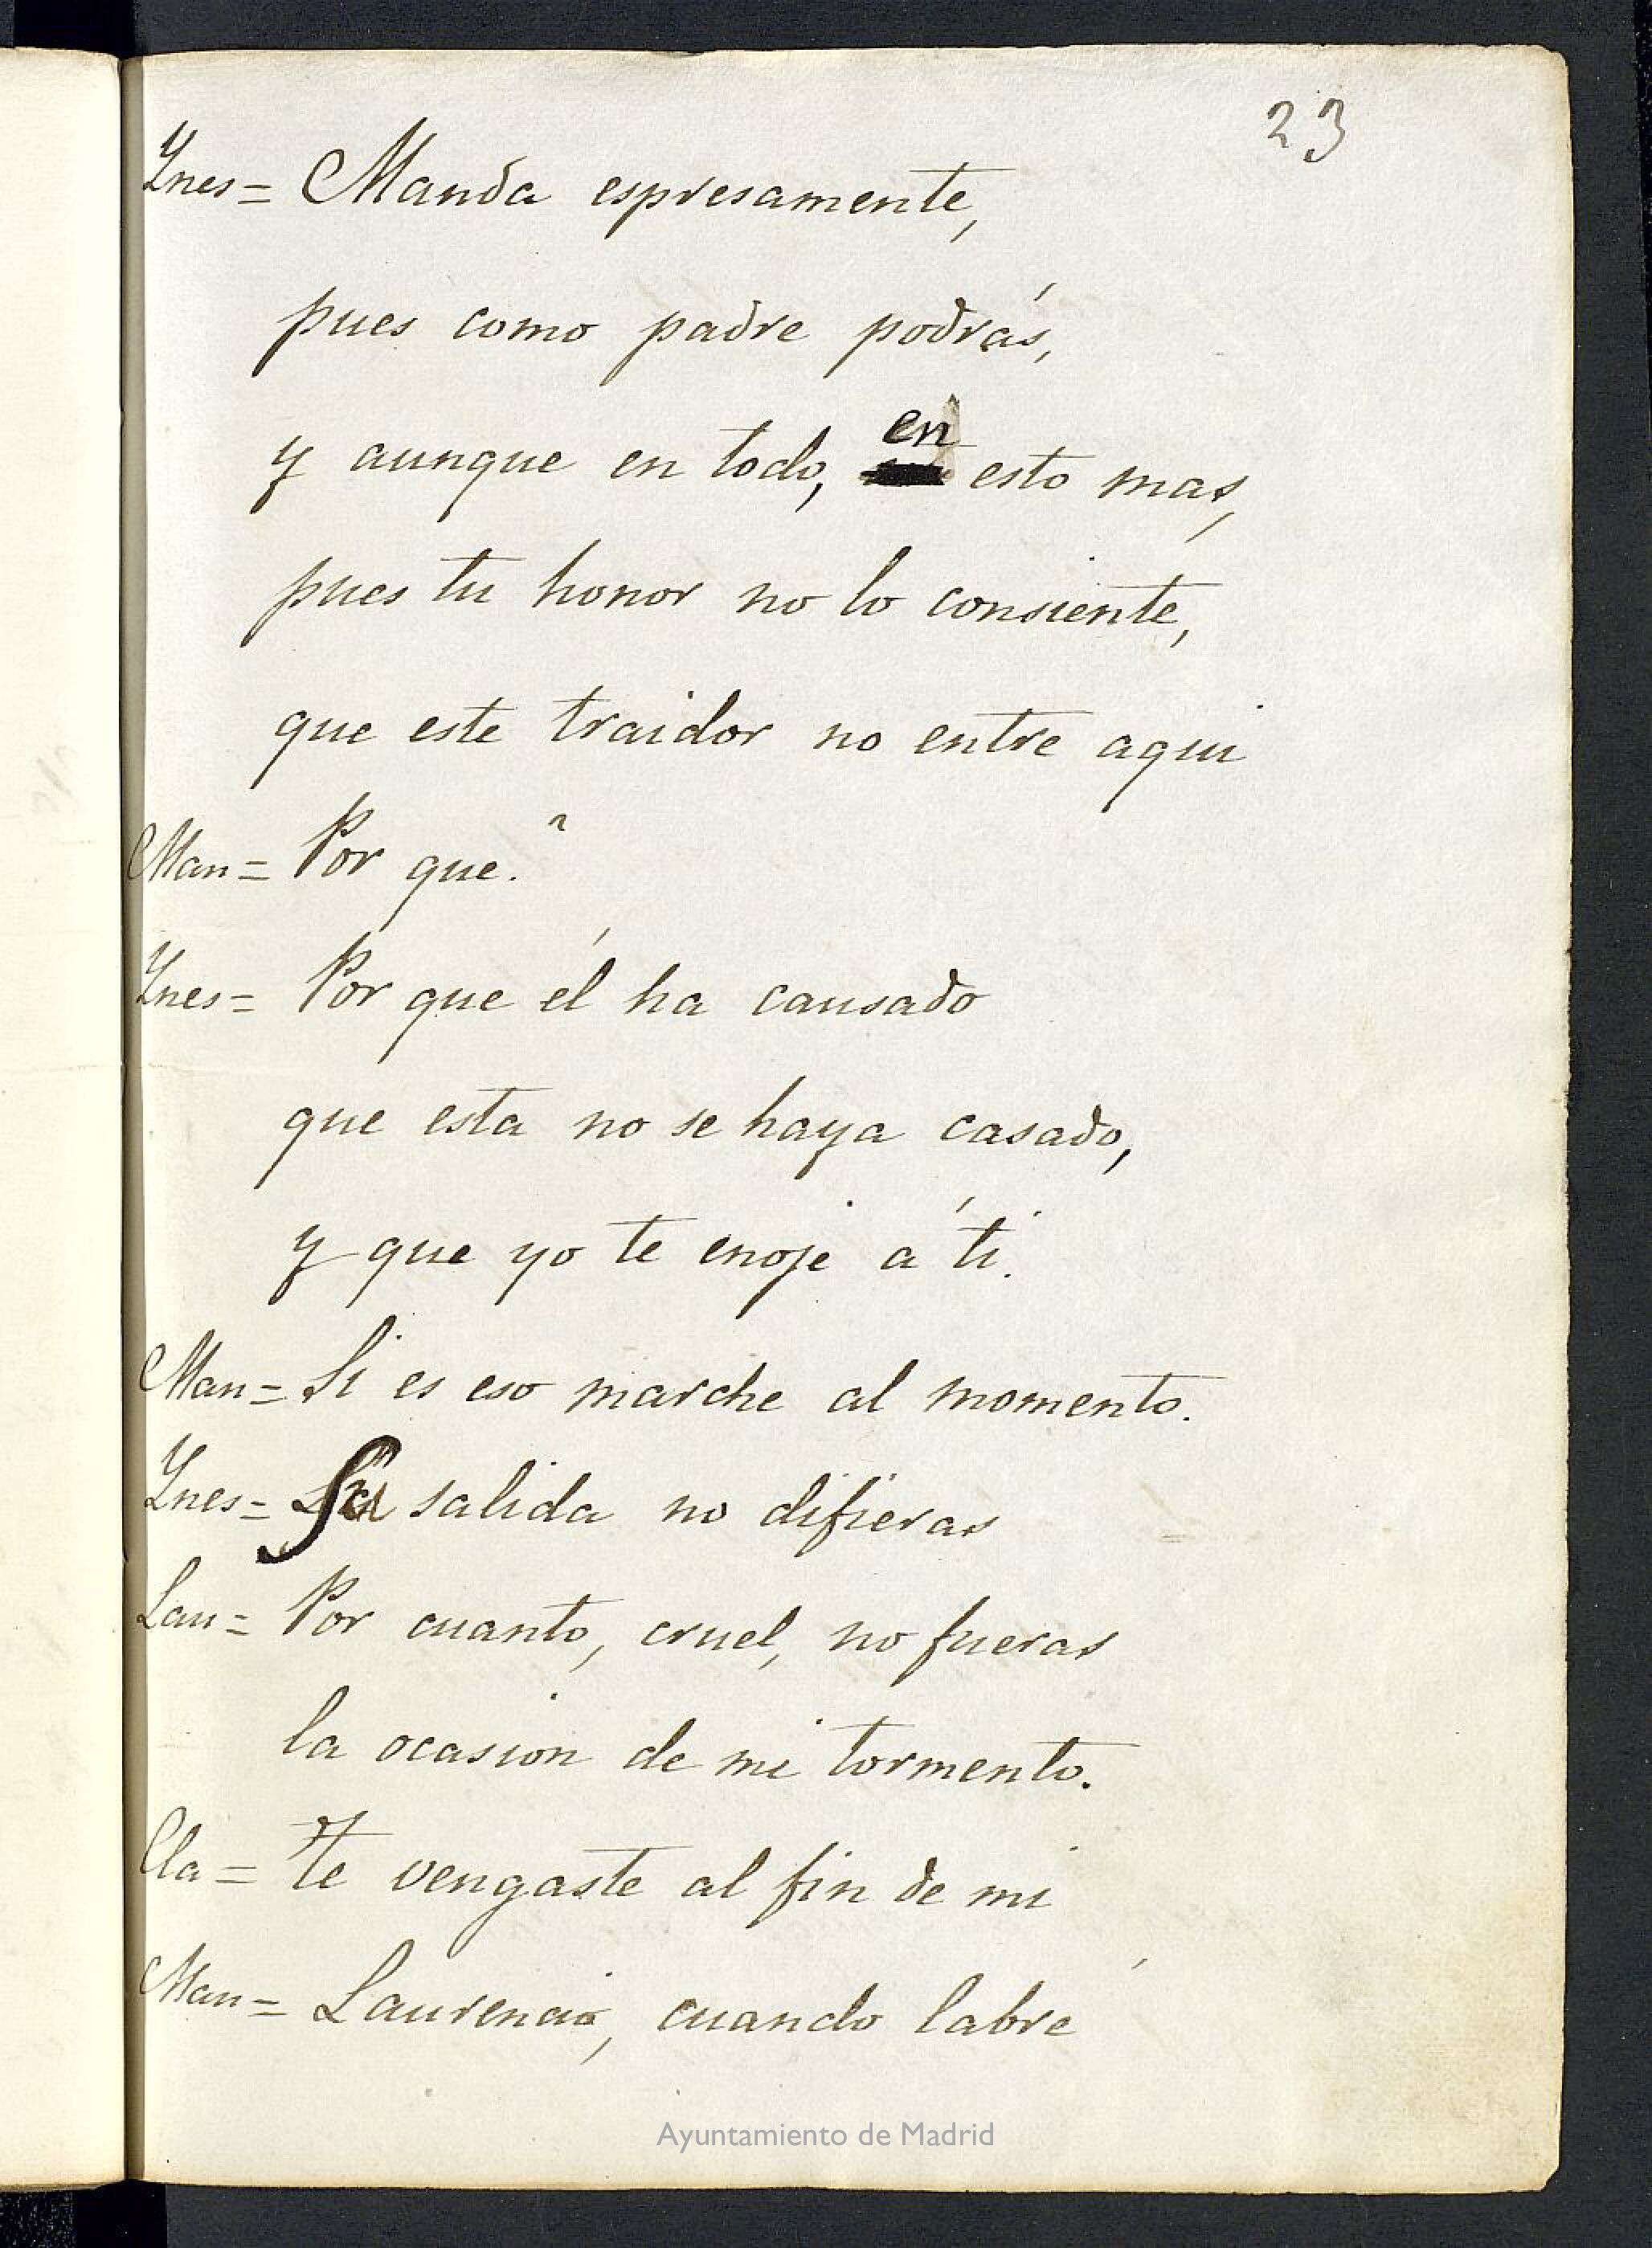 23
Ynes = Manda espresamente,
pues como padre podrás,
y aunque en todo, en esto mas,
pues tu honor no lo consiente,
que este traidor no entre aqui
Man = Por que?
Ynes = Por que él ha causado
que esta no se haya casado,
y que yo te enoje á ti.
Man = Si es eso marche al momento.
Ynes = Su salida no difieras
Lau = Por cuanto, cruel, no fueras
la ocasion de mi tormento.
Cla = Te vengaste al fin de mi
Man = Laurencia, cuando labré
Ayuntamiento de Madrid